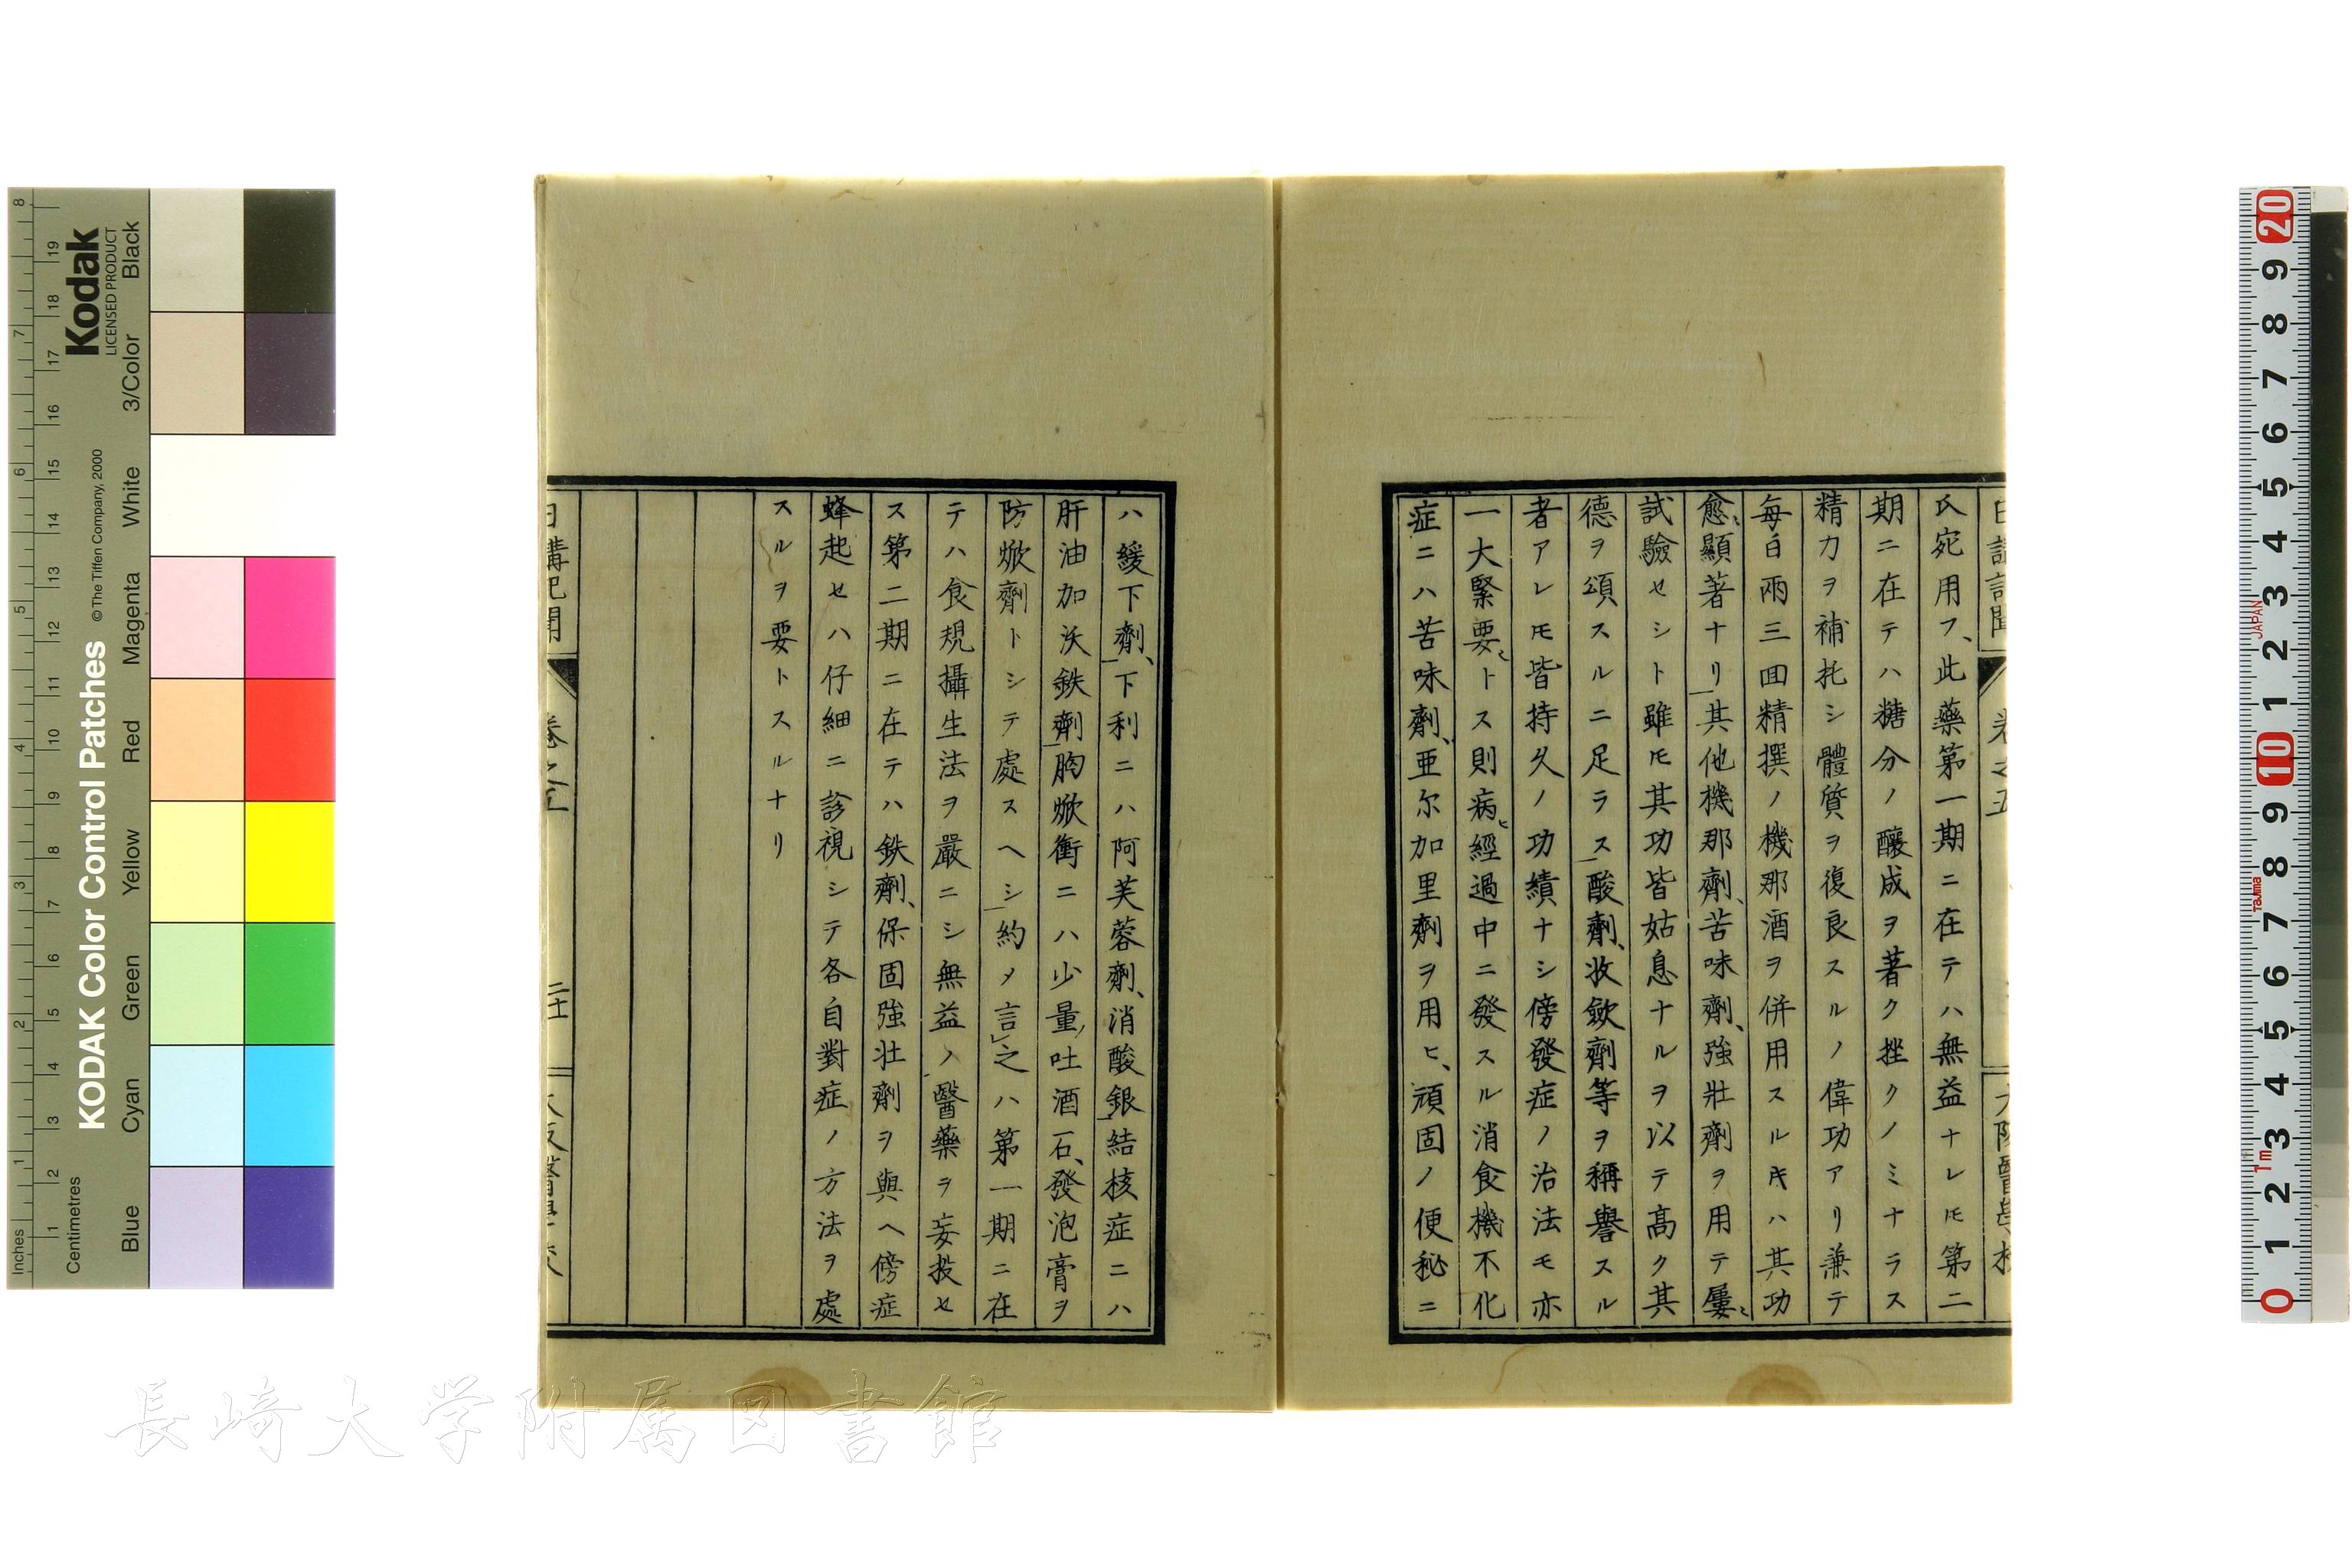 日講記聞
卷之五
大阪醫學校
氏宛用フ、此藥第一期ニ在テハ無益ナレ𪜈第二
期ニ在テハ糖分ノ釀成ヲ著ク挫クノミナラス
精力ヲ補托シ體質ヲ復良スルノ偉功アリ兼テ
每日兩三回精撰ノ機那酒ヲ併用スル𪜀ハ其功
愈顯著ナリ其他機那劑、苦味劑、強壯劑ヲ用テ屢
試驗セシト雖𪜈其功皆姑息ナルヲ以テ高ク其
德ヲ頌スルニ足ラス酸劑、收歛劑等ヲ稱譽スル
者アレ𪜈皆持久ノ功績ナシ傍發症ノ治法モ亦
一大緊要トス則病經過中ニ發スル消食機不化
症ニハ苦味劑、亜尓加里劑ヲ用ヒ、頑固ノ便秘ニ
ハ緩下劑、下利ニハ阿芙蓉劑、消酸銀結核症ニハ
肝油加沃鉄劑胸焮衝ニハ少量吐酒石、發泡膏ヲ
防焮劑トシテ處スヘシ約メ言之ハ第一期ニ在
テハ食規攝生法ヲ嚴ニシ無益ノ醫藥ヲ妄投セ
ス第二期ニ在テハ鉄劑、保固強壮劑ヲ與ヘ傍症
蜂起セハ仔細ニ診視シテ各自對症ノ方法ヲ處
スルヲ要トスルナリ
日講記聞
卷之五
大阪醫學校
長崎大学附属図書館
Kodak
LICENSED PRODUCT
KODAK Color Control Patches
©The Tiffen Company, 2000
Black
3/Color
White
Magenta
Red
Yellow
Green
Cyan
Blue
Inches
1 2 3 4 5 6 7 8
Centimetres
1 2 3 4 5 6 7 8 9 10 11 12 13 14 15 16 17 18 19
20 9 8 7 6 5 4 3 2 1 10 9 8 7 6 5 4 3 2 1 0
JAPAN
Tajima
1m